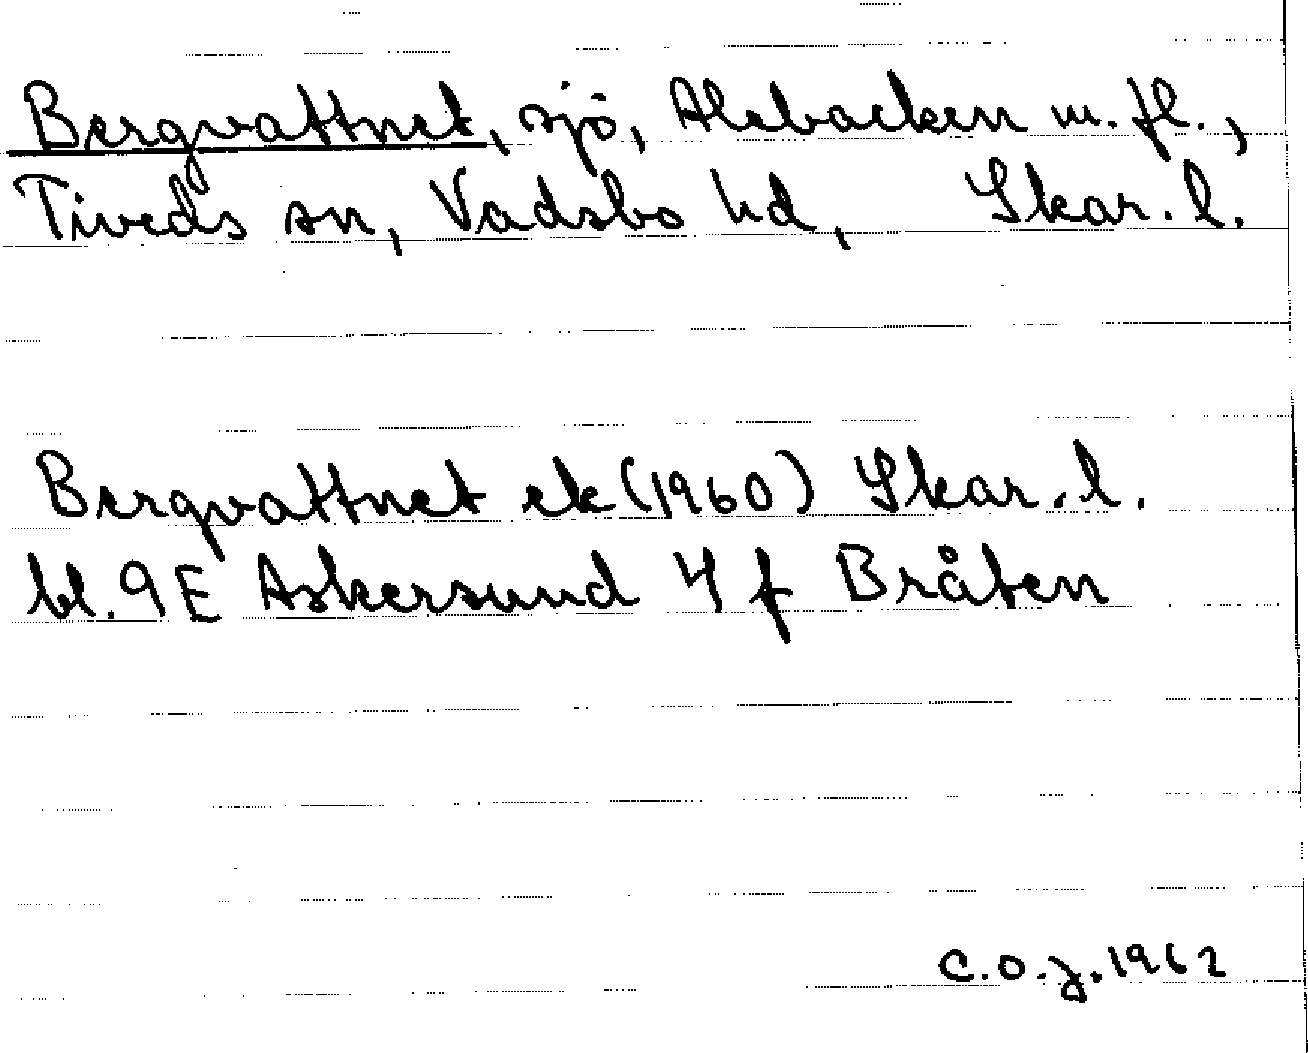 Bergvattnet, sjö, Alsbacken m. fl.,
Tiveds sn, Vadsbo hd, Skar. l.
Bergvattnet ek (1960) Skar. l.
bl. 9E Askersund 4 f Bråten
C.O.J. 1962